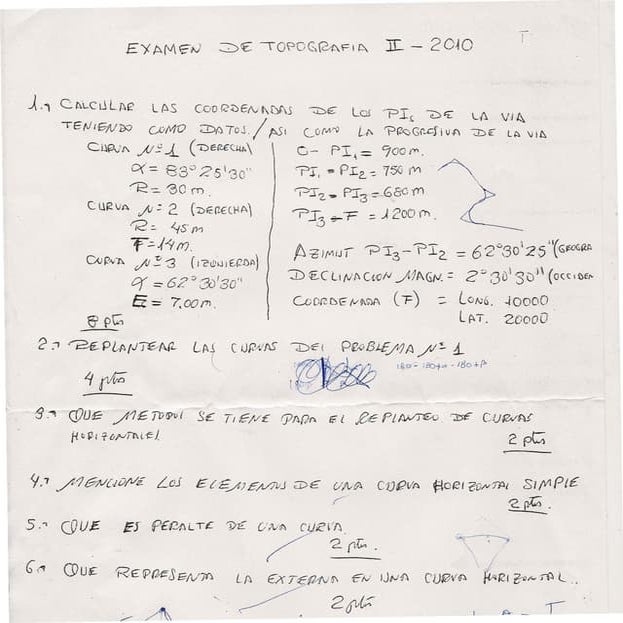 EXAMEN DE TOPOGRAFIA II - 2010
1.- CALCULAR LAS COORDENADAS DE LOS PIs DE LA VIA
TENIENDO COMO DATOS. / ASI COMO LA PROGRESIVA DE LA VIA
CURVA Nº 1 (DERECHA)
α = 83°25'30"
R = 30 m.
CURVA Nº 2 (DERECHA)
R = 45 m
T = 14 m.
CURVA Nº 3 (IZQUIERDA)
α = 62°30'30"
E = 7.00 m.
8 pts
O - PI1 = 900 m.
PI1 - PI2 = 750 m
PI2 - PI3 = 680 m.
PI3 - F = 1200 m.
AZIMUT PI3 - PI2 = 62°30'25" (GEOGRA
DECLINACION MAGN. = 2°30'30" (OCCIDEN
COORDENADA (F) = LONG. 10000
LAT. 20000
2.- REPLANTEAR LAS CURVAS DEL PROBLEMA Nº 1
4 pts
3.- QUE METODOS SE TIENE PARA EL REPLANTEO DE CURVAS
HORIZONTALES.
2 pts
4.- MENCIONE LOS ELEMENTOS DE UNA CURVA HORIZONTAL SIMPLE
2 pts.
5.- QUE ES PERALTE DE UNA CURVA
2 pts.
6.- QUE REPRESENTA LA EXTERNA EN UNA CURVA HORIZONTAL..
2 pts